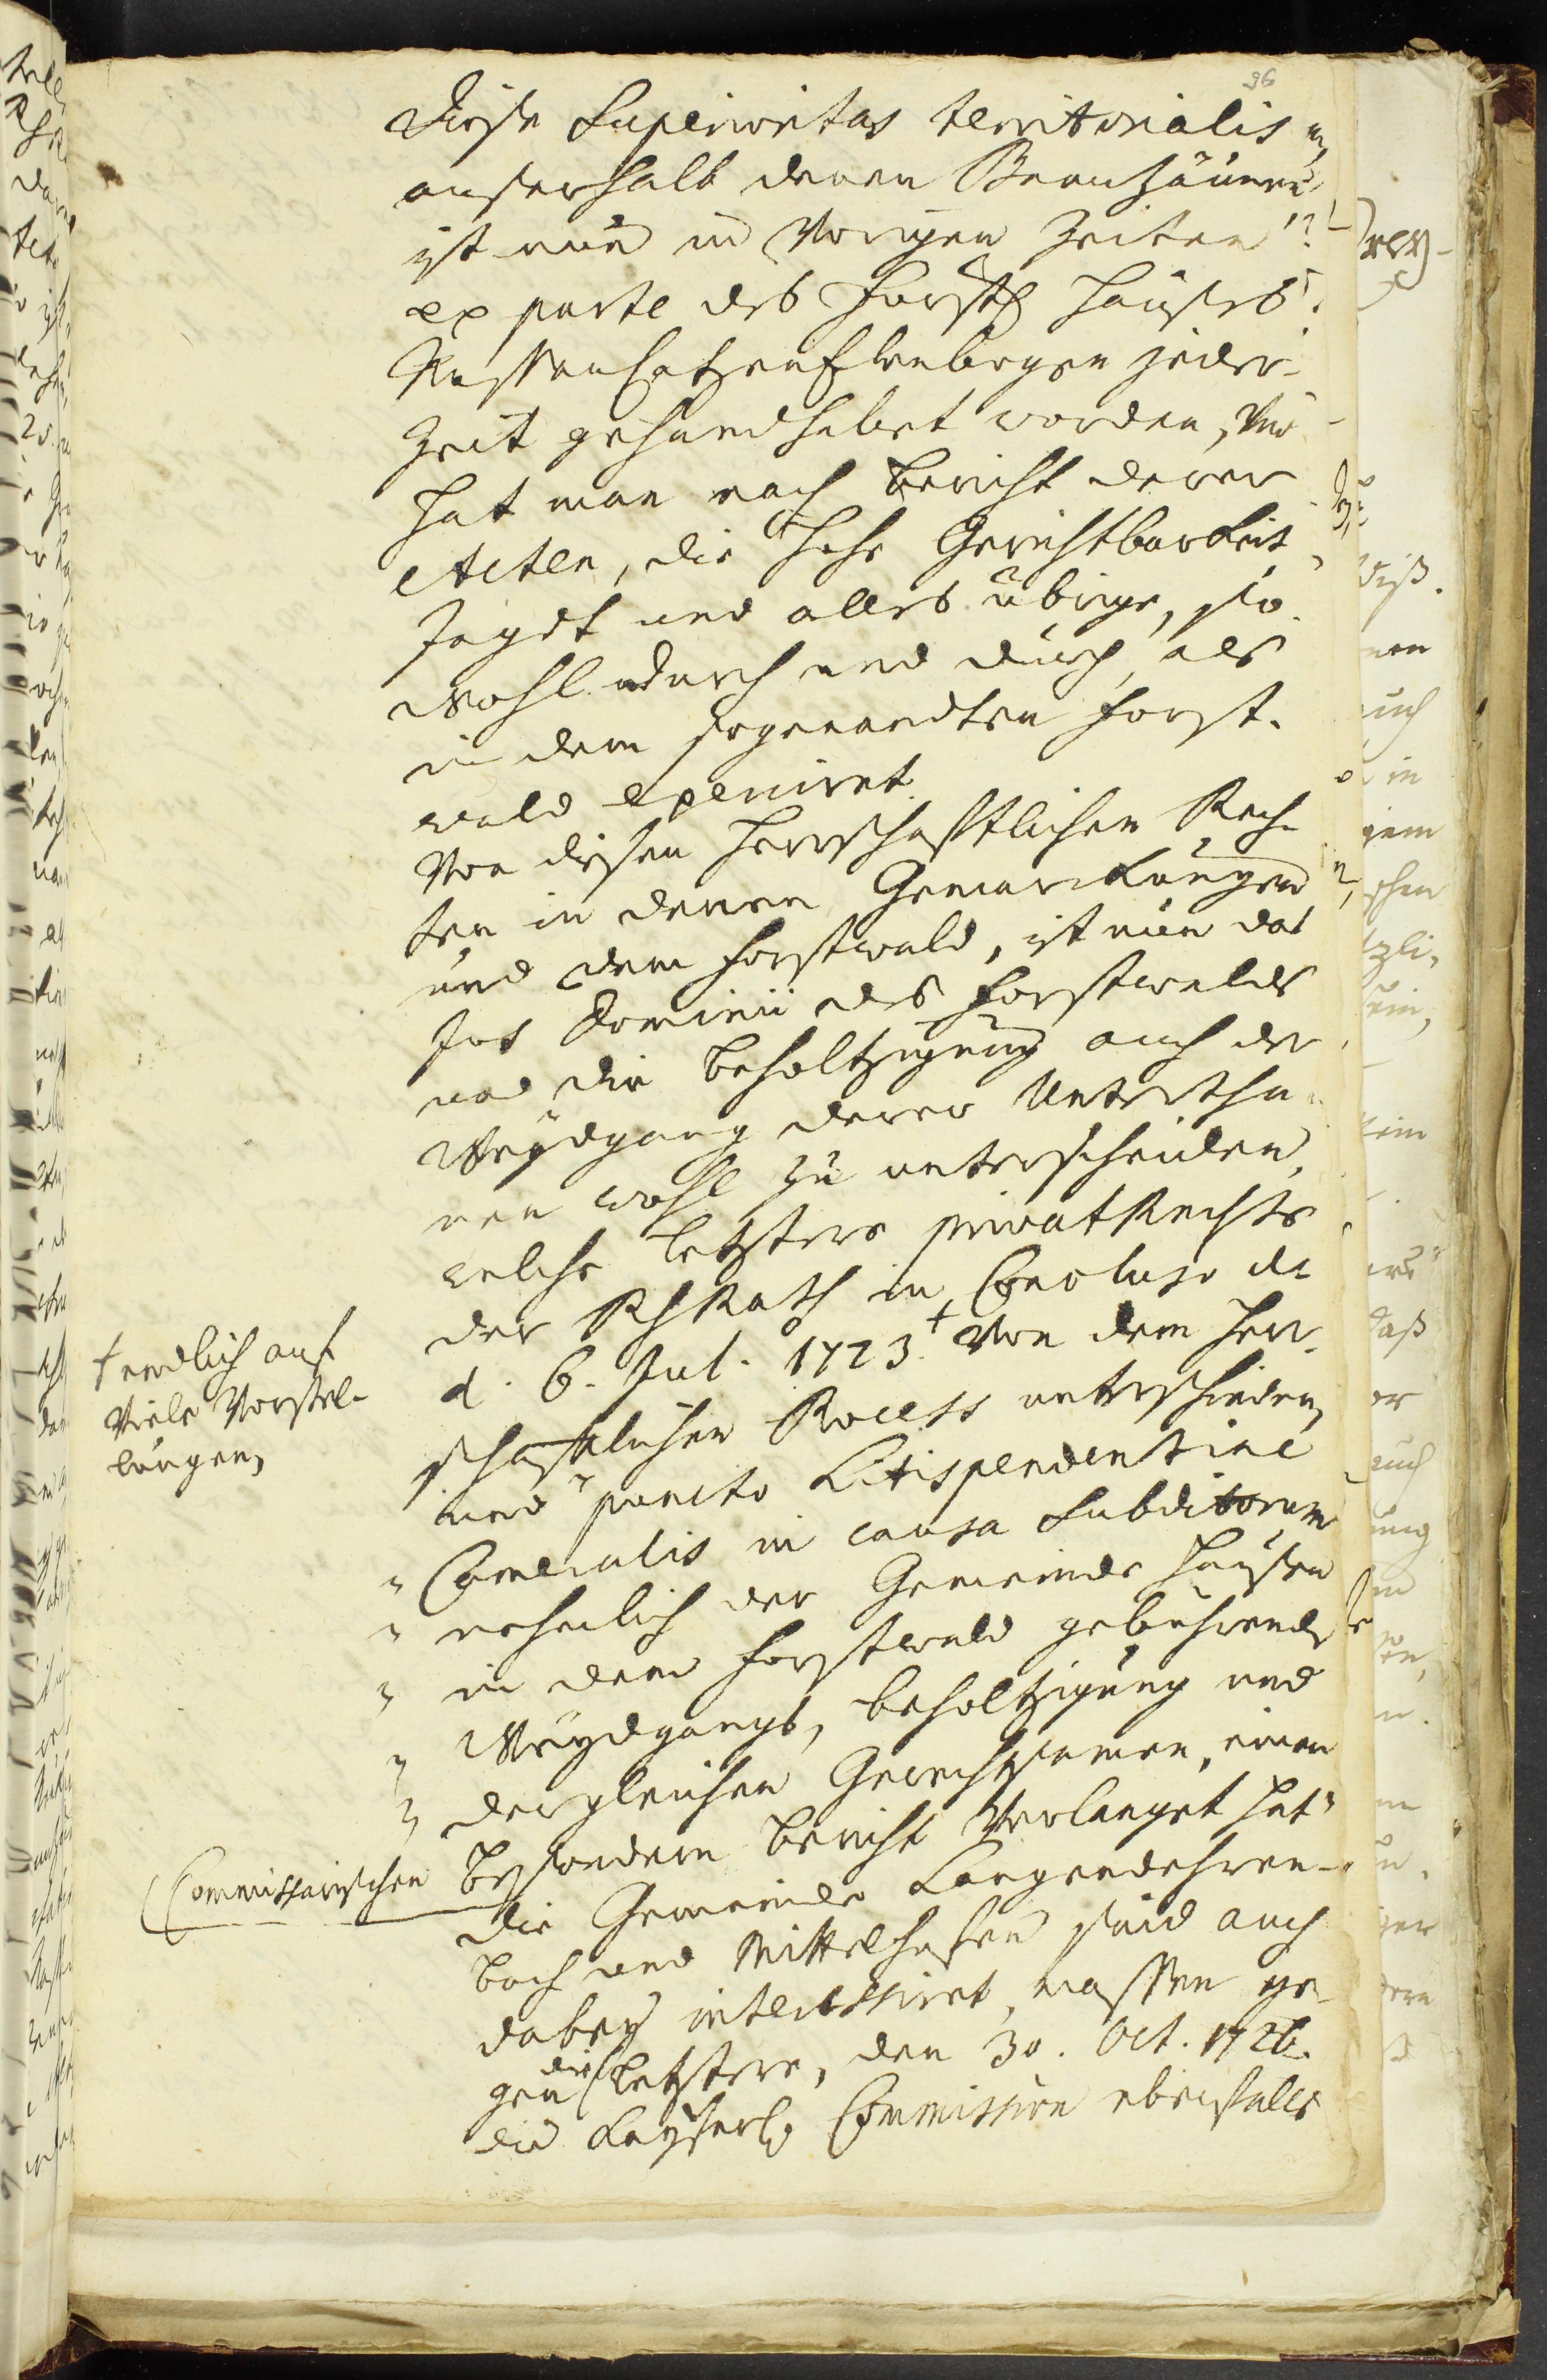 96
Diese Superioritas territorialis
ausserhalb denen Bannzäunen
ist nun in Vorigen Zeiten
ex parte des Fürstl Hauses
Nassau Catzenelenbogen jeder-
Zeit gehandhabet worden, und
hat man nach Bericht derer
Acten, die Hohe Gerichtbarkeit
Jagdt und alles übrige, so
wohl durch und durch, als
in dem sogenandten Forst-
wald exerciret.
Von diesen Herrschafftlichen Rech-
ten in denen Gemarckungen
und dem Forstwald, ist nun das
Jus Dominii des Forstwalds
und die Beholtzigung auch der
Weydgang derer Untertha-
nen wohl zu unterscheiden,
welche letztere privat Rechte
der RHRath in Concluso de
d. 6. Jul. 1723.† Von dem Herr-
schafftlichen Process unterschieden,
und puncto Litispendentiae
" Cameralis in causa Subditorum
" nehmlich der Gemeinde Hausen
" in dem Forstwald gebührende
" Weydgangs, Beholtzigung und
" dergleichen Gerechtsamen, einen
besondern Bericht Verlanget hat"
die Gemeinde Langendehren-
bach und Mittelhofen seind auch
dabey interessiret, massen ge-
gen die letztere, den 30. Oct. 1726.
die Kayserl. Commission ebenfalls
† endlich auf
Viele Vorstel-
lungen,
Commissarischen